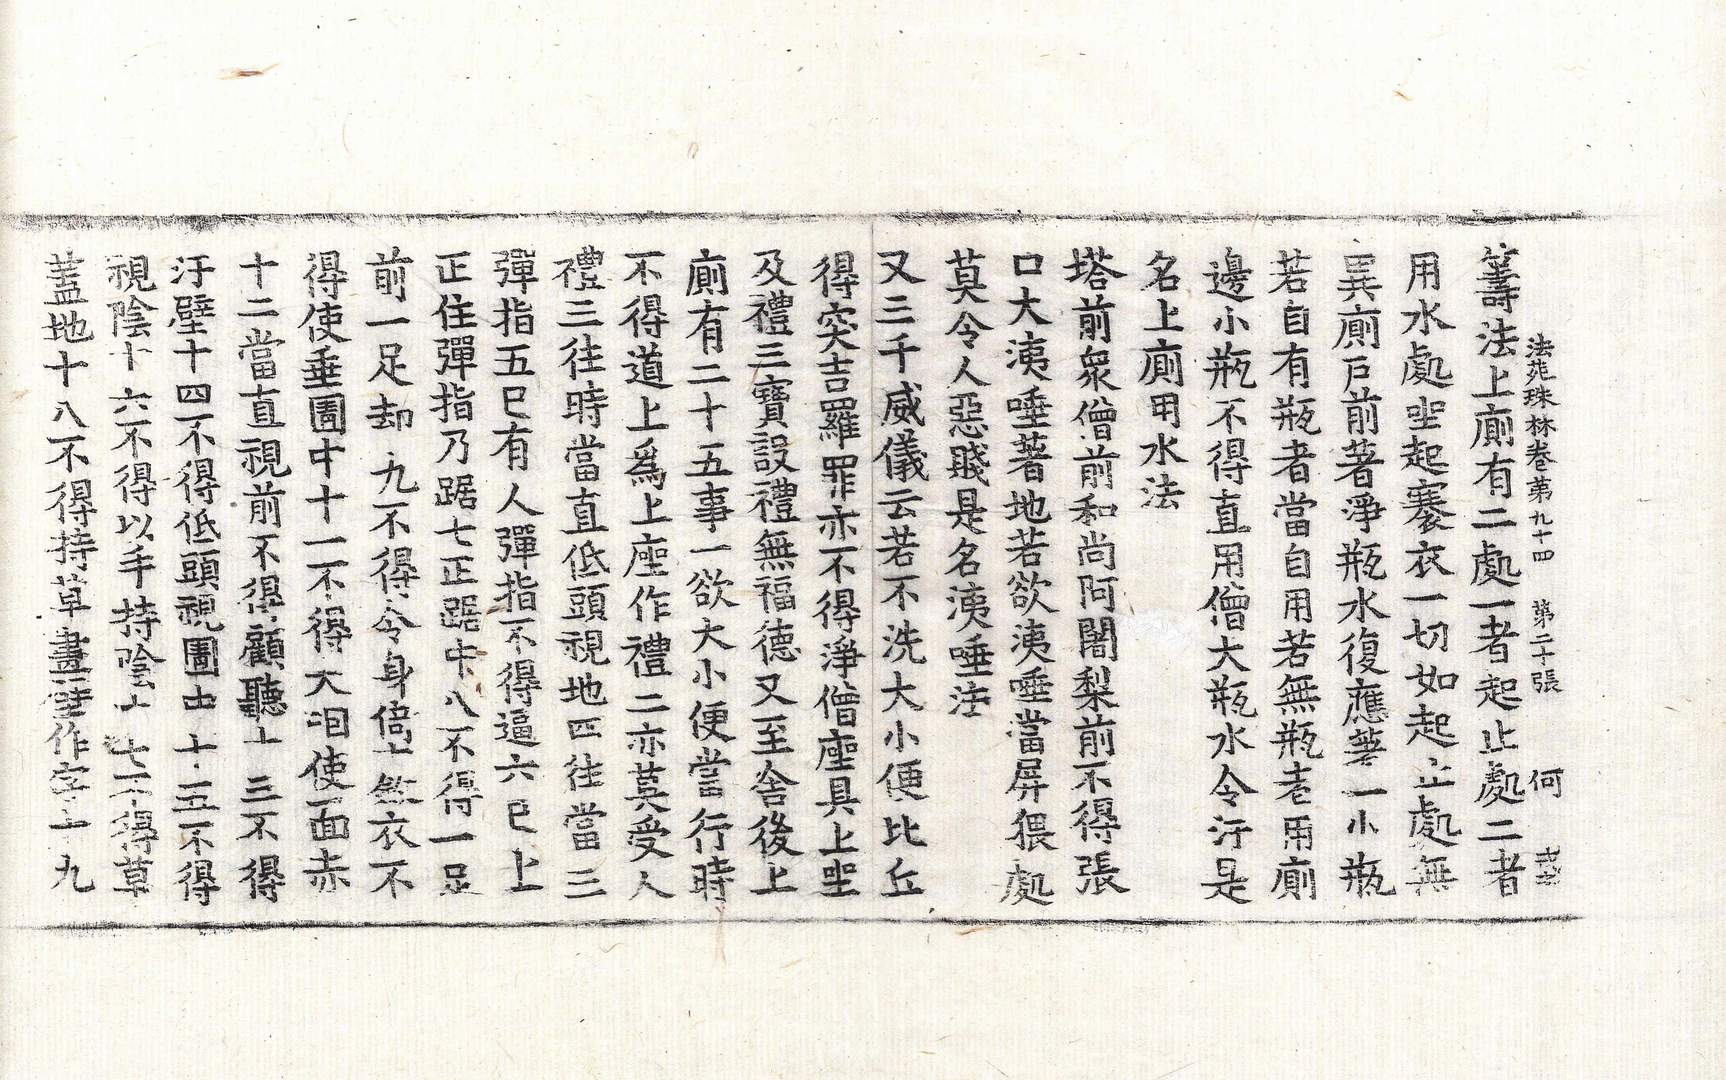 法苑珠林卷第九十四 第二十張 何
籌法上廁有二處一者起止處二者
用水處坐起褰衣一切如起止處無
異廁戶前著淨瓶水復應著一小瓶
若自有瓶者當自用若無瓶者用廁
邊小瓶不得直用僧大瓶水令汙是
名上廁用水法
塔前衆僧前和尚阿闍梨前不得張
口大洟唾著地若欲洟唾當屏猥處
莫令人惡賤是名洟唾法
又三千威儀云若不洗大小便比丘
得突吉羅罪亦不得淨僧座具上坐
及禮三寶設禮無福德又至舍後上
廁有二十五事一欲大小便當行時
不得道上爲上座作禮二亦莫受人
禮三往時當直低頭視地四往當三
彈指五已有人彈指不得逼六已上
正住彈指乃踞七正踞中八不得一足
前一足却九不得令身倚十斂衣不
得使垂圊中十一不得大咽使面赤
十二當直視前不得顧聽十三不得
汙壁十四不得低頭視圊中十五不得
視陰十六不得以手持陰十七不得草
蓋地十八不得持草畫壁作字十九